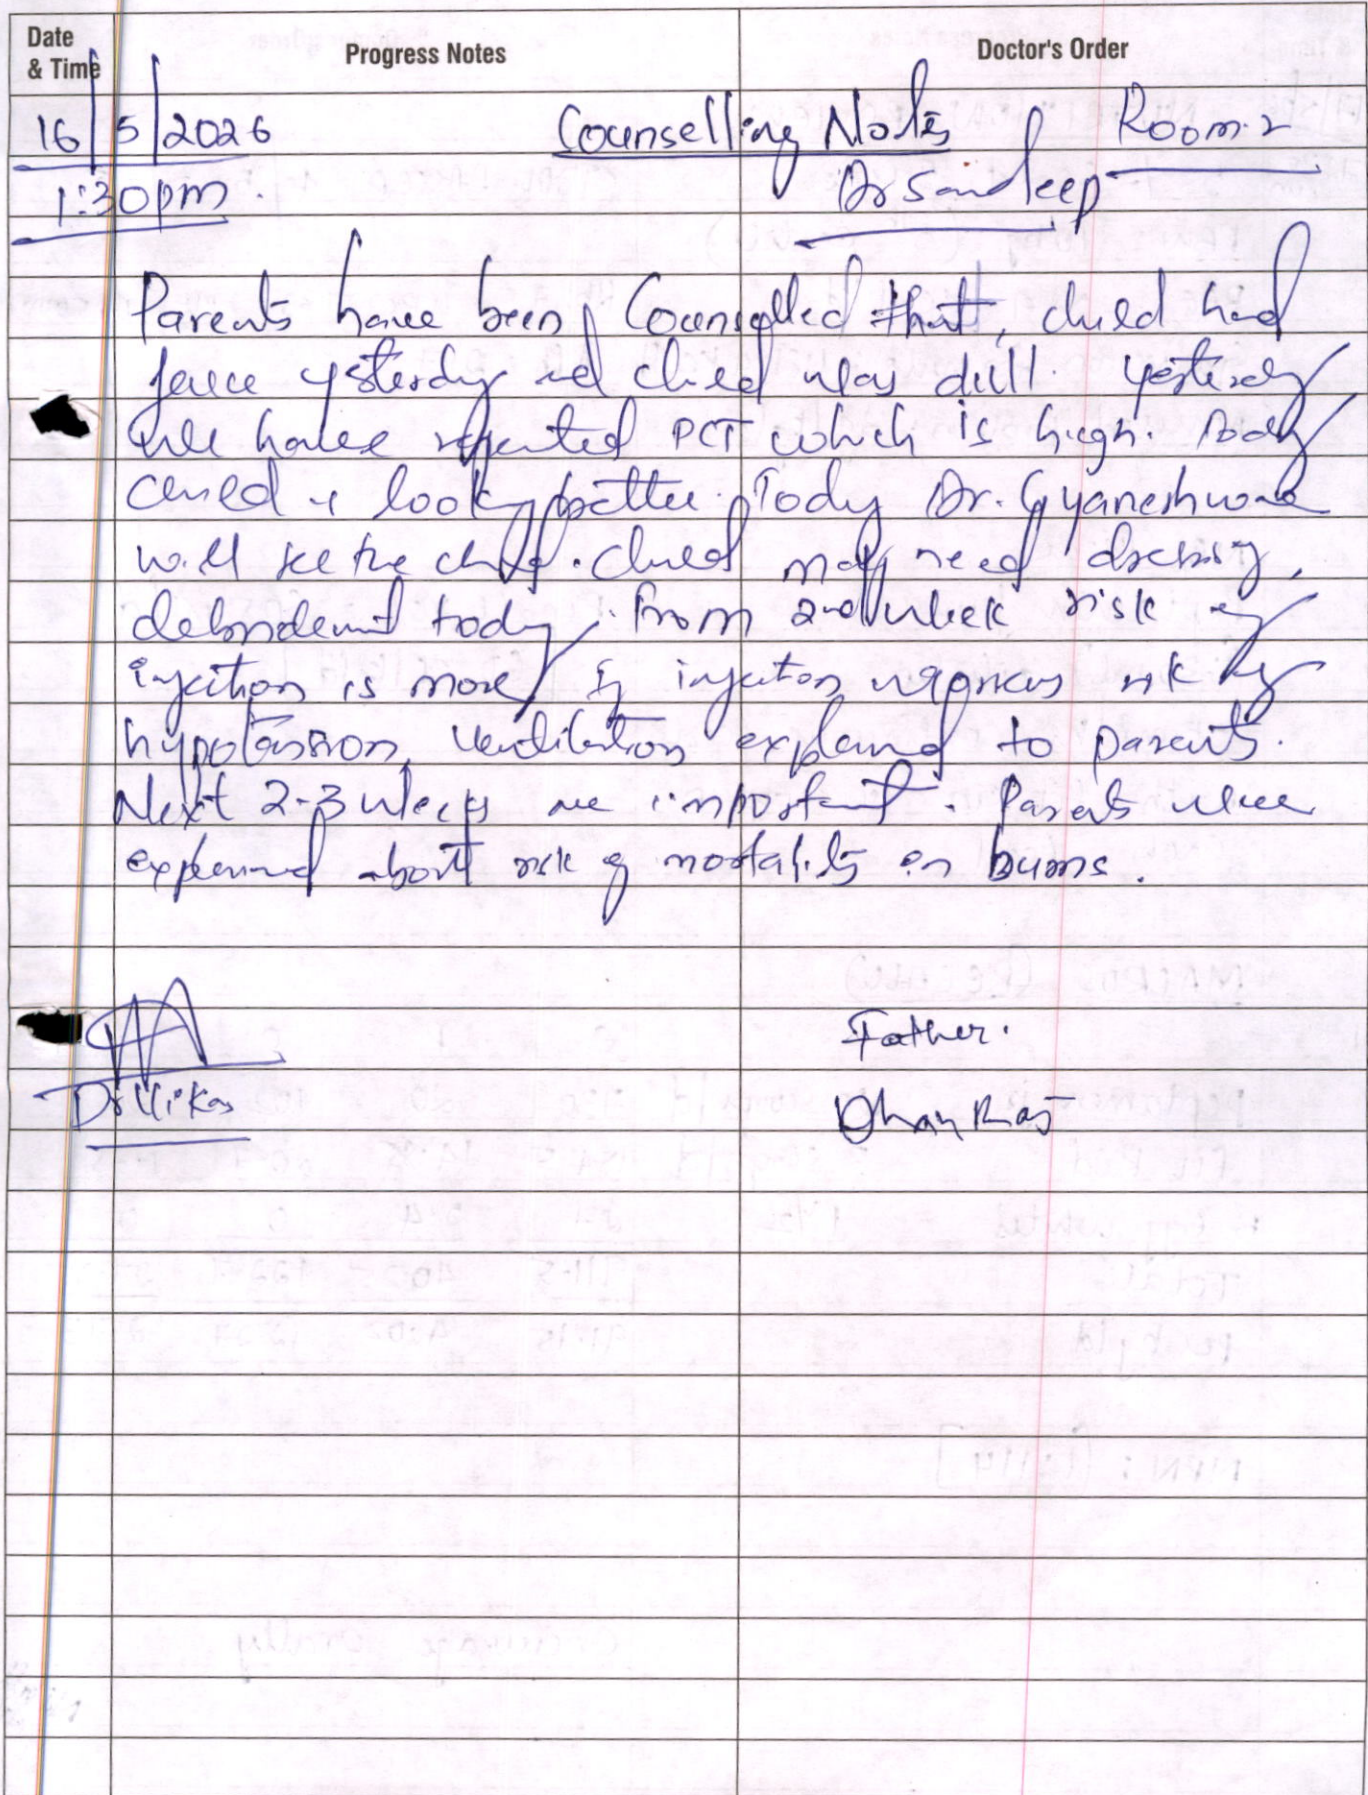 Date
& Time
Progress Notes
Doctor's Order
16/5/2026 Counselling Notes Room-2
1:30pm. Dr Sandeep
Parents have been Counselled that, child had
fever yesterday and child was dull. Yesterday
we have repeated PCT which is high. Today
child is looking better. Today Dr. Gyaneshwar
will see the child. Child may need dressing,
debridement today. From 2nd week risk of
infection is more. If infection worsens risk of
hypotension, ventilation explained to parents.
Next 2-3 weeks are important. Parents were
explained about risk of mortality in burns.
Father.
Dr Vikas
Dhan Raj